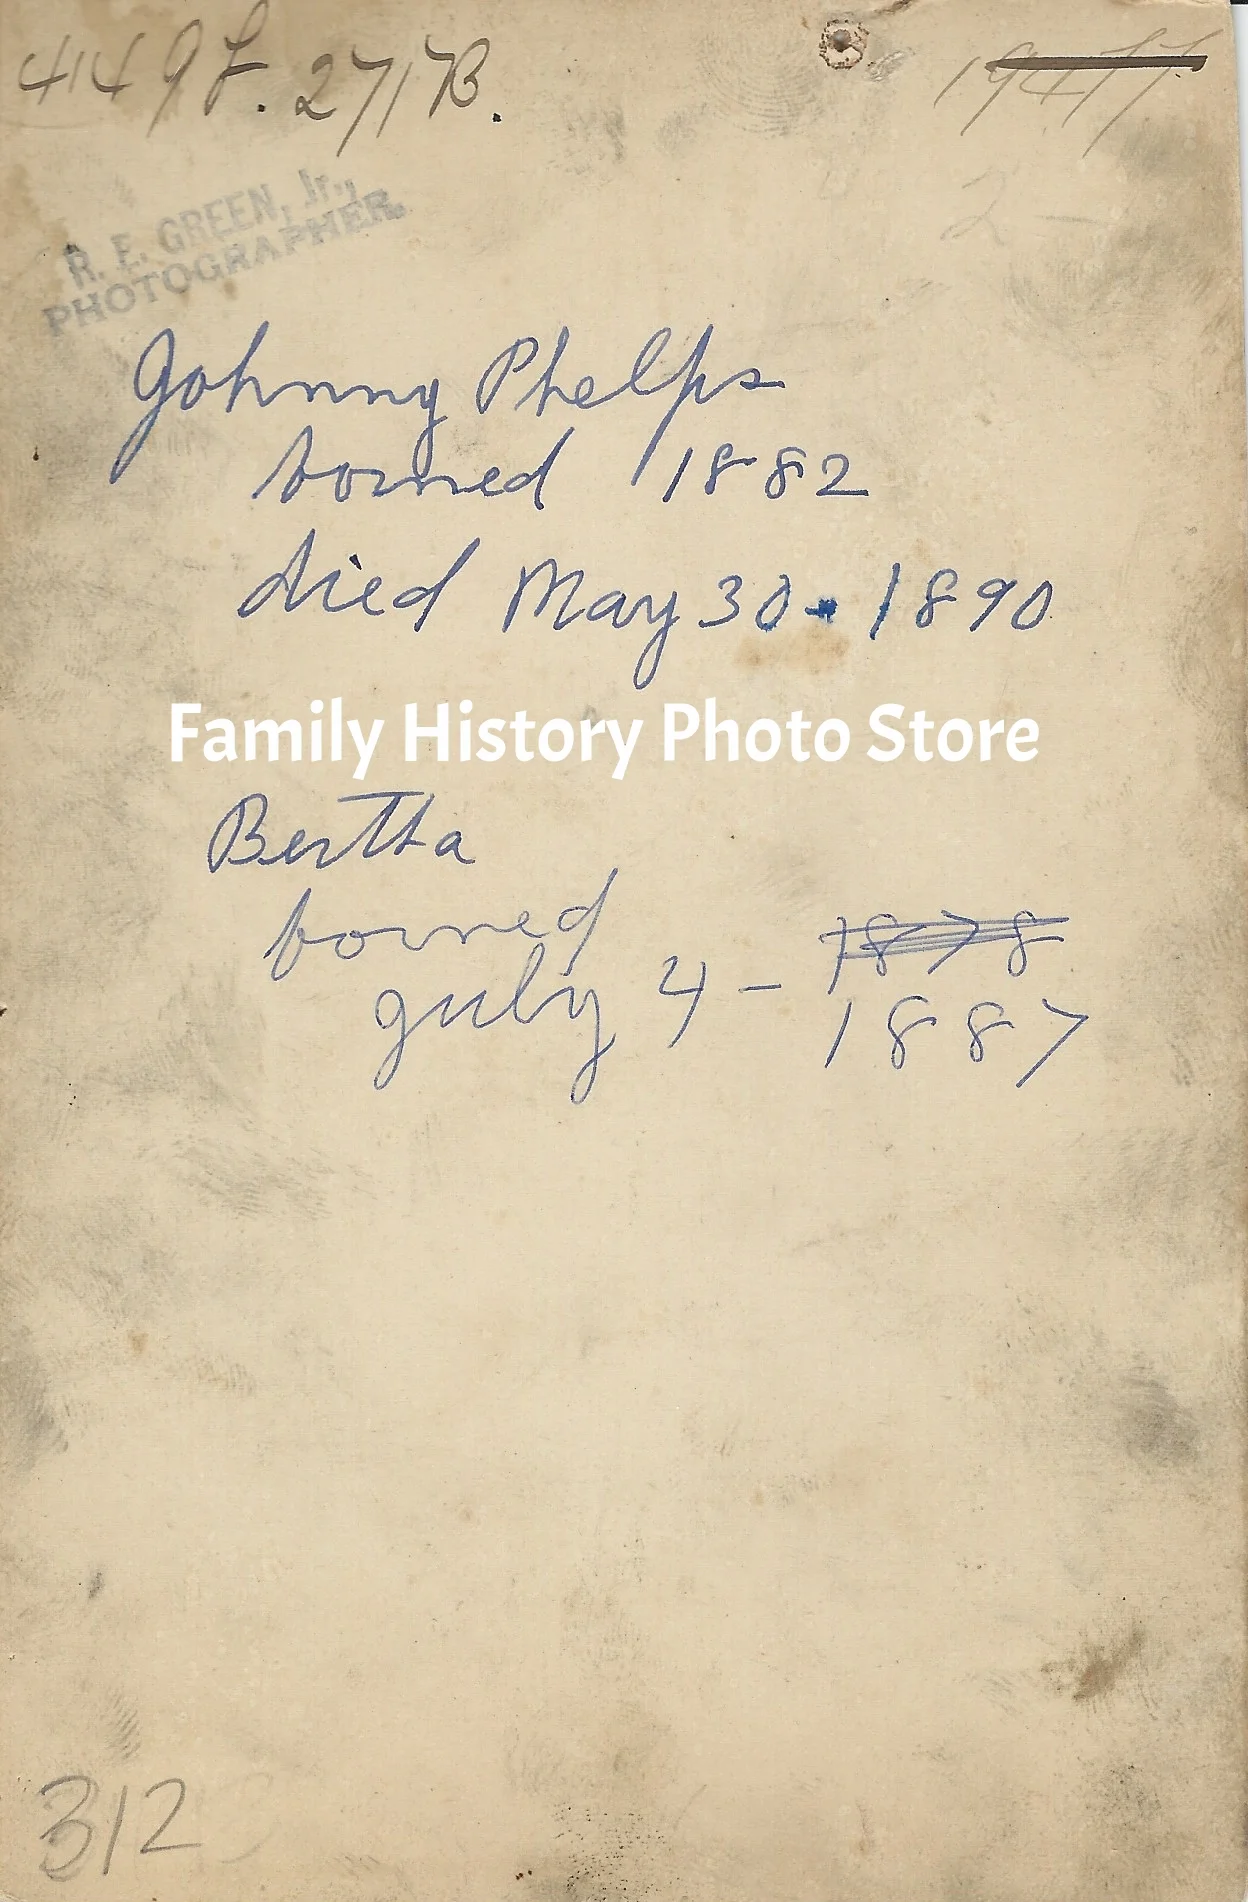 4149 F. 2717B.
R. E. GREEN, Jr.,
PHOTOGRAPHER.
2 -
Johnny Phelps
borned 1882
died May 30 - 1890
Family History Photo Store
Bertha
borned
July 4 - 1878
1887
312